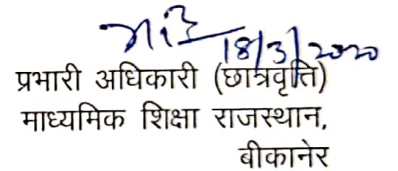 18/3/2020
प्रभारी अधिकारी (छात्रवृत्ति)
माध्यमिक शिक्षा राजस्थान,
बीकानेर